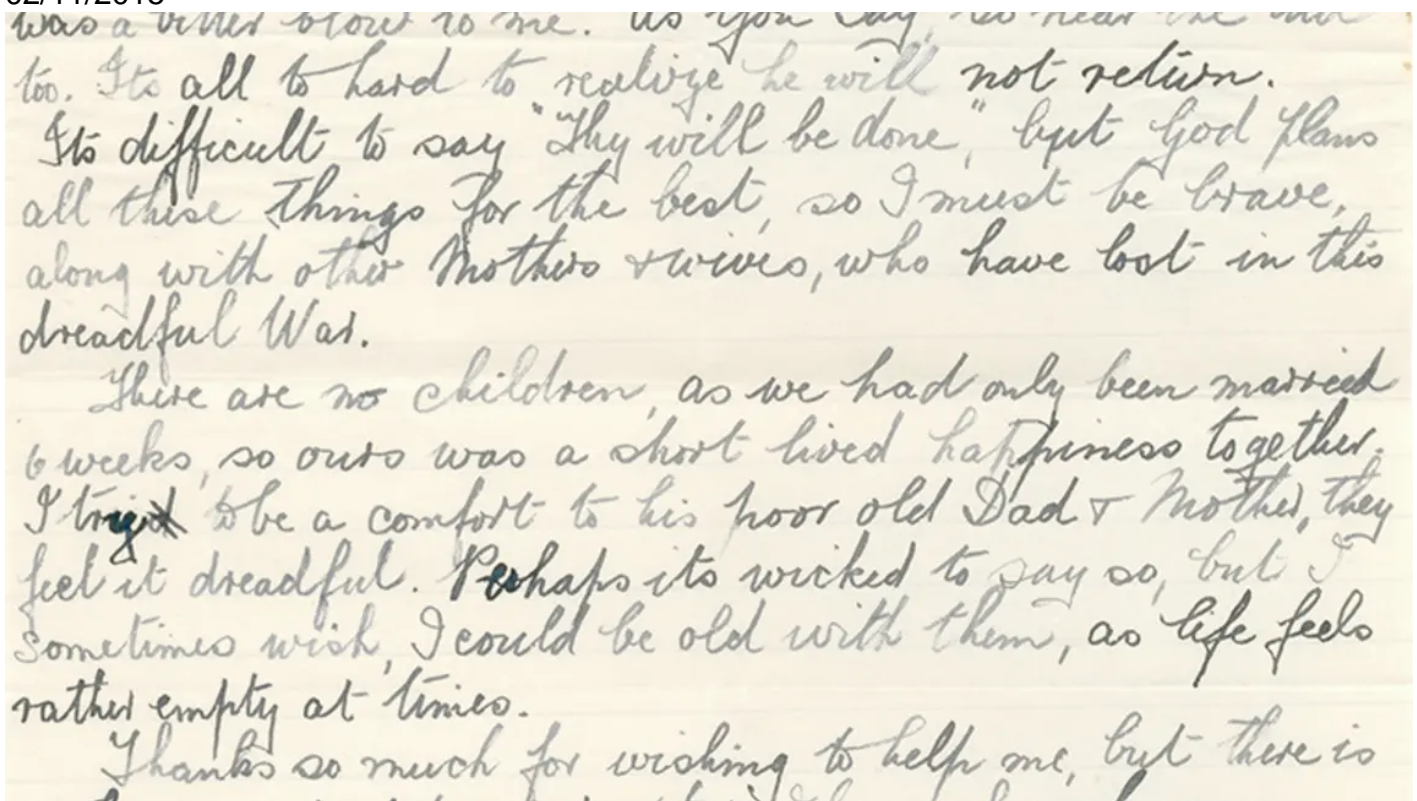 02/11/2018
was a bitter blow to me. As you say, to hear the
too. Its all to hard to realize he will not return.
Its difficult to say "Thy will be done," but God plans
all these things for the best, so I must be brave,
along with other Mothers & wives, who have lost in this
dreadful War.
There are no children, as we had only been married
6 weeks, so ours was a short lived happiness together.
I try to be a comfort to his poor old Dad & Mother, they
feel it dreadful. Perhaps its wicked to say so, but I
sometimes wish, I could be old with them, as life feels
rather empty at times.
Thanks so much for wishing to help me, but there is